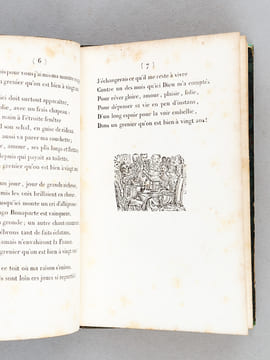 ( 6 )
pour vous j'ai mis ma montre
grenier qu'on est bien à vingt
doit surtout apparaître,
avec un frais chapeau
main à l'étroite fenêtre
son schal, en guise de
aussi va parer ma couchette,
, amour, ses plis longs et
qui payait sa toilette.
grenier qu'on est bien à vingt
jour, jour de grande
mes voix brillaient en
monte un cri d'
Bonaparte est vainqueur.
gronde ; un autre chant
tant de faits éclatans.
n'envahiront la France.
ce toit où ma raison s'enivre.
sont loin ces jours si
( 7 )
J'échangerais ce qu'il me reste à vivre
Contre un des mois qu'ici Dieu m'a comptés,
Pour rêver gloire, amour, plaisir, folie,
Pour dépenser sa vie en peu d'instans,
D'un long espoir pour la voir embellie,
Dans un grenier qu'on est bien à vingt ans !